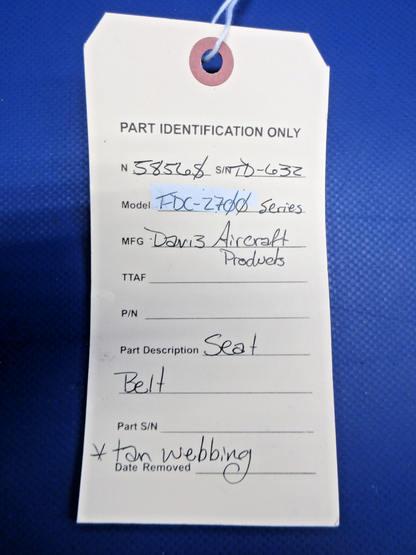 PART IDENTIFICATION ONLY
N 58568 S/N TD-632
Model FDC-2700 Series
MFG Davis Aircraft
Products
TTAF
P/N
Part Description Seat
Belt
Part S/N
* tan webbing
Date Removed